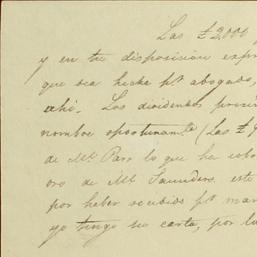 Las £2,000
y en tu disposicion
que sea hecha pr abogado,
ahi. Los dividendos
nombre oportunamte (Las £
de Mr Pass lo que has
oro de Mr Saunders este
por haber recibido pr
yo tengo su carta, por lo